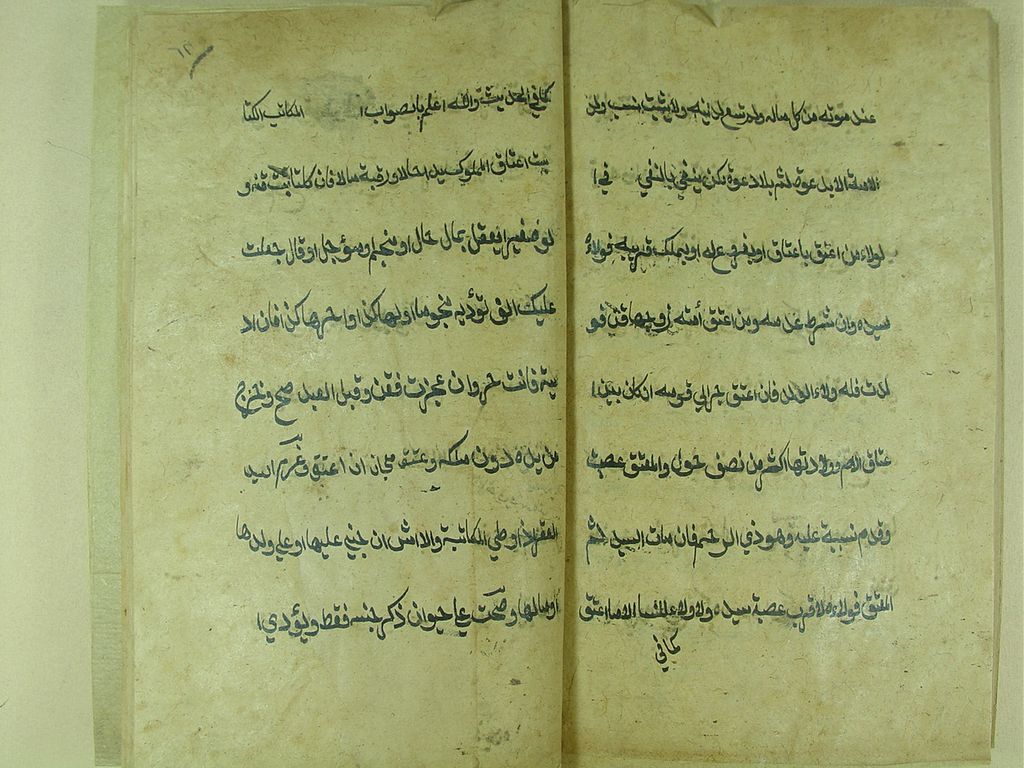 عند موته من كل ماله ولم تسع لدينه ولا يثبت نسب ولد
الامة الا بدعوة ثم بلا دعوة لكن ينفي بالنفي في ا
لولاء من اعتق باعتاق او بفرع له او بملك قريبه فولاءه
سيده وان شرط عدمه ومن اعتق أمته زوجها قن فو
لدت فله ولاء الولد فان اعتق جر الى قومه ان كان بين ا
عتاق الام وولادتها اكثر من نصف حول والمعتق عصبة
وقدم نسبية عليه وهو ذي الرحم فان مات السيد ثم
المعتق فولاءه لاقرب عصبة سيده ولا ولاء للنساء الا ما اعتقن
كما في
١٣
كما في الحديث والله اعلم بالصواب ا المكاتب الكتا
بة اعتاق المملوك يدا حالا ورقبة مالا فان كاتب قنه و
لو صغيرا يعقل بمال حال او منجم ومؤجل او قال جعلت
عليك الف تؤديه نجوما اولها كذا واخرها كذا فان اد
يته فانت حر وان عجزت فقن وقبل العبد صح وخرج
من يده دون ملكه وعتق مجانا ان اعتق وغرم السيد
العقر ان وطي المكاتبة والارش ان جني عليها او علي ولدها
او مالها وصحت علي حيوان ذكر جنسه فقط ويؤدي ا